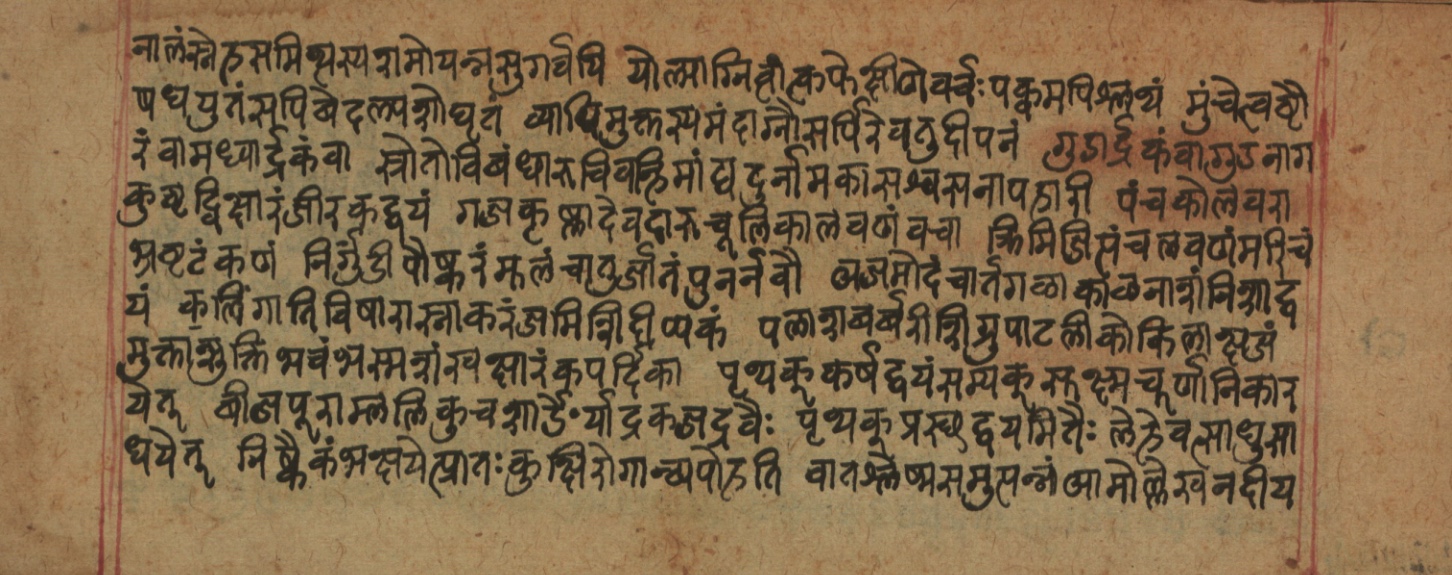 नालंस्नेहसमिध्यस्यशमोयन्नसुगर्वपि योल्पाग्नित्वात्कफेक्षीणेवर्चः पक्वमपिश्लथं मुंचेत्पव्यौ
षधयुतंसपिबेदल्पशोघृतं व्याधिमुक्तस्यमंदाग्नौसर्पिरेवतुदीपनं गुडार्द्रकंवागुडनाग
रंवामध्वार्द्रकंवा स्त्रोतोविबंधारुचिवन्हिमांद्यदुर्नामकासश्वसनापहारी पंचकोलंवरा
कुष्ठद्विक्षारंजीरकद्वयं गजकृष्णादेवदारुचूलिकालवणंवचा क्रिमिजित्पंचलवणंमरिचं
भ्रष्टटंकणं निर्गुंडीपौष्करंमूलंचातुर्जातंपुनर्नवौ अजमोदंचार्तगळाकांळनाशंनिशाद्व
यं कलिंगातिविषारास्नाकरंजमिशिदीप्यकं पलाशबर्बरीशिग्रुपाटलीकोकिलाक्षजं
मुक्ताशुक्तिभवंभस्मशंखक्षारंकपर्दिका पृथक्कर्षद्वयंसम्यक्सूक्ष्मचूर्णानिकार
येत् बीजपूराम्ललिकुचशार्ङेर्याद्रकजद्रवैः पृथक्प्रस्थद्वयमितैः लेहवत्साधुसा
धयेत् निष्कैकंभक्षयेत्प्रातः कुक्षिरोगान्व्यपोहति वातश्लेष्मसमुत्पन्नंआमोल्लेखनदीय